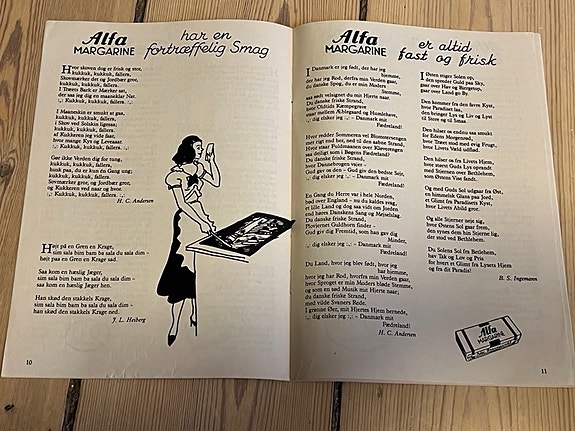 Alfa
MARGARINE
har en
fortræffelig Smag
Hvor skoven dog er frisk og stor,
kukkuk, kukkuk, fallera,
Skovmærker det og Jordbær groer,
kukkuk, kukkuk, fallera,
I Træets Bark er Mærker sat,
der saa jeg dig en maneklar Nat.
:,: Kukkuk, kukkuk, fallera. :,:
I Maaneskin er smukt at gaa,
kukkuk, kukkuk, fallera,
i Skov ved Solskin ligesaa,
kukkuk, kukkuk, fallera,
af Kukkeren jeg vide faar,
hvor mange Kys og Leveaar.
:,: Kukkuk, kukkuk, fallera. :,:
Gør ikke Verden dig for tung,
kukkuk, kukkuk, fallera,
husk paa, du er kun en Gang ung;
kukkuk, kukkuk, fallera,
Skovmærker groe, og Jordbær groe,
og Kukkeren ved nær og hvor.
:,: Kukkuk, kukkuk, fallera. :,:
H. C. Andersen
Højt på en Gren en Krage,
sim sala bim bam ba sala du sala dim –
højt paa en Gren en Krage sad.
Saa kom en hæslig Jæger,
sim sala bim bam ba sala du sala dim –
saa kom en hæslig Jæger hen.
Han skød den stakkels Krage,
sim sala bim bam ba sala du sala dim –
han skød den stakkels Krage ned.
J. L. Heiberg
10
Alfa
MARGARINE
er altid
fast og frisk
I Danmark er jeg født, der har jeg
hjemme,
der har jeg Rod, derfra min Verden gaar,
du danske Sprog, du er min Moders
Stemme,
saa sødt velsignet du mit Hjerte naar.
Du danske friske Strand,
hvor Oldtids Kæmpegrave
staar mellem Æblegaard og Humlehave,
:,: dig elsker jeg :,: – Danmark mit
Fædreland!
Hvor redder Sommeren vel Blomstersengen
mer rigt end her, ned til den aabne Strand,
hvor staar Fuldmaanen over Kløverengen
saa dejligt som i Bøgens Fædreland?
Du danske friske Strand,
hvor Dannebrogen vaier –
Gud gav os den – Gud giv den bedste Sejr,
:,: dig elsker jeg :,: – Danmark mit
Fædreland!
En Gang du Herre var i hele Norden,
bød over England – nu du kaldes svag,
et lille Land og dog saa vidt om Jorden
end høres Danskens Sang og Mejselslag.
Du danske friske Strand,
Plovjernet Guldhorn finder –
Gud giv dig Fremtid, som han gav dig
Minder,
:,: dig elsker jeg :,: – Danmark mit
Fædreland!
Du Land, hvor jeg blev født, hvor jeg
har hjemme,
hvor jeg har Rod, hvorfra min Verden gaar,
hvor Sproget er min Moders bløde Stemme,
og som en sød Musik mit Hjerte naar;
du danske friske Strand,
med vilde Svaners Rede.
I grønne Øer, mit Hjertes Hjem hernede,
:,: dig elsker jeg :,: – Danmark mit
Fædreland!
H. C. Andersen
I Østen stiger Solen op,
den spreder Guld paa Sky,
gaar over Hav og Bjergetop,
gaar over Land og By.
Den kommer fra den favre Kyst,
hvor Paradiset laa,
den bringer Lys og Liv og Lyst
til Store og til Smaa.
Den hilser os endnu saa smukt
fra Edens Morgenrød,
hvor Træet stod med evig Frugt,
hvor Livets Væld udflød.
Den hilser os fra Livets Hjem,
hvor størst Guds Lys oprandt
med Stjernen over Bethlehem,
som Østens Vise fandt.
Og med Guds Sol udgaar fra Øst,
en himmelsk Glans paa Jord,
et Glimt fra Paradisets Kyst,
hvor Livets Abild groer.
Og alle Stjerner neje sig,
hvor Østens Soel gaar frem,
den synes dem hin Stjerne lig,
der stod ved Bethlehem.
Du Solens Sol fra Betlehem,
hav Tak og Lov og Pris
for hvert et Glimt fra Lysets Hjem
og fra dit Paradis!
B. S. Ingemann
Alfa
MARGARINE
11